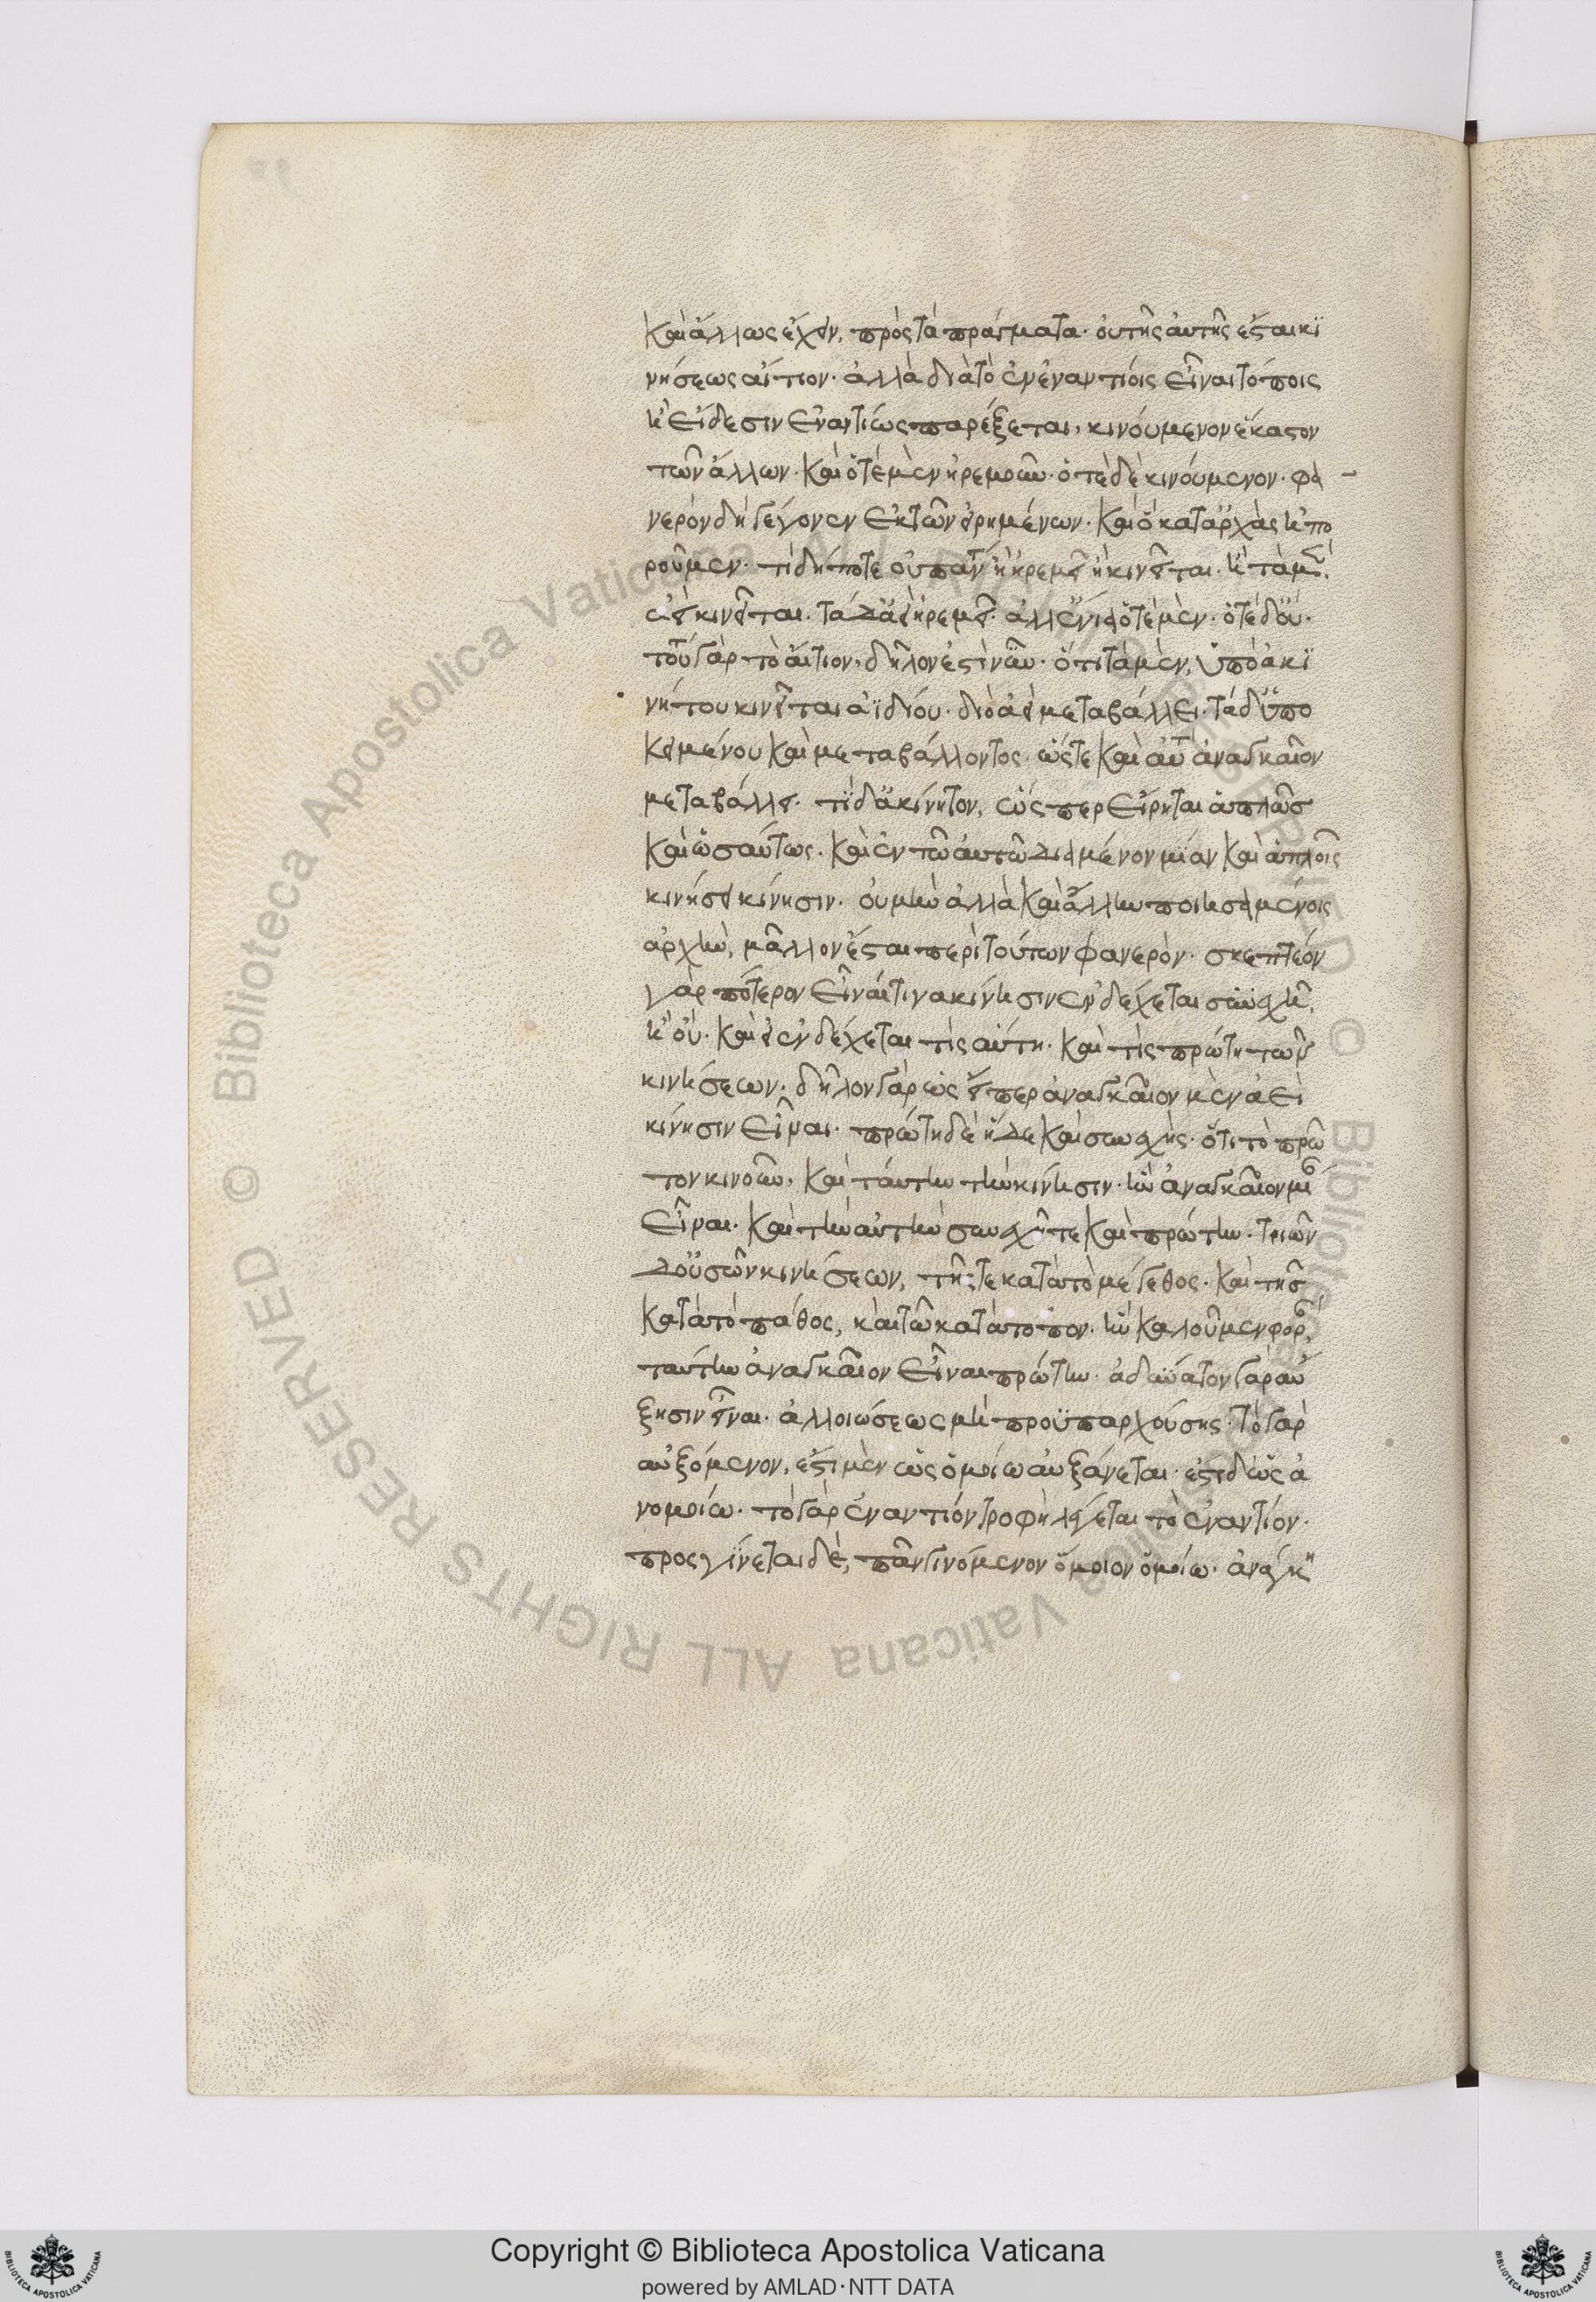 καὶ ἄλλως ἔχειν, πρὸς τὰ πράγματα· οὐ τῆς αὐτῆς ἔσται κι
νήσεως αἴτιον· ἀλλὰ διὰ τὸ ἐν ἐναντίοις εἶναι τόποις
ἢ εἴδεσιν ἐναντίως παρέξεται, κινούμενον ἕκαστον
τῶν ἄλλων· καὶ ὁτὲ μὲν ἠρεμοῦν· ὁτὲ δὲ κινούμενον· φα
νερὸν δὴ γέγονεν ἐκ τῶν εἰρημένων· καὶ ὃ κατ' ἀρχὰς ἠπο
ροῦμεν· τί δήποτε οὐ πάντ' ἢ ἠρεμεῖ ἢ κινεῖται· ἢ τὰ μὲν,
ἀεὶ κινεῖται· τὰ δ' ἀεὶ ἠρεμεῖ· ἀλλ' ἔνια ὁτὲ μὲν· ὁτὲ δ' οὔ·
τούτου γὰρ τὸ αἴτιον, δῆλόν ἐστι νῦν· ὅτι τὰ μὲν, ὑπὸ ἀκι
νήτου κινεῖται ἀϊδίου· διὸ ἀεὶ μεταβάλλει· τὰ δ' ὑπὸ
κειμένου καὶ μεταβάλλοντος· ὥστε καὶ αὐτὰ ἀναγκαῖον
μεταβάλλειν· τὸ δ' ἀκίνητον, ὥσπερ εἴρηται ἁπλῶς
καὶ ὡσαύτως· καὶ ἐν τῷ αὐτῷ διαμένον μίαν καὶ ἁπλῆν
κινήσει κίνησιν· οὐ μὴν ἀλλὰ καὶ ἄλλην ποιησαμένοις
ἀρχὴν, μᾶλλον ἔσται περὶ τούτων φανερὸν· σκεπτέον
γὰρ πότερον εἶναί τινα κίνησιν ἐνδέχεται συνεχῆ,
ἢ οὔ· καὶ εἰ ἐνδέχεται τίς αὕτη· καὶ τίς πρώτη τῶν
κινήσεων· δῆλον γὰρ ὡς εἴπερ ἀναγκαῖον μὲν ἀεὶ
κίνησιν εἶναι· πρώτη δὲ ἥδε καὶ συνεχής· ὅτι τὸ πρῶ
τον κινοῦν, καὶ ταύτην τὴν κίνησιν· ἣν ἀναγκαῖον μίαν
εἶναι· καὶ τὴν αὐτὴν συνεχῆ τε καὶ πρώτην· τριῶν
δ' οὐσῶν κινήσεων, τῆς τε κατὰ τὸ μέγεθος· καὶ τῆς
κατὰ τὸ πάθος, καὶ τῶν κατὰ τόπον· ἣν καλοῦμεν φοράν,
ταύτην ἀναγκαῖον εἶναι πρώτην· ἀδύνατον γὰρ αὔ
ξησιν εἶναι· ἀλλοιώσεως μὴ προϋπαρχούσης· τὸ γὰρ
αὐξόμενον, ἔστι μὲν ὡς ὁμοίω αὐξάνεται· ἔστι δ' ὡς ἀ
νομοίω· τὸ γὰρ ἐναντίον τροφὴ λέγεται τὸ ἐναντίον·
προσγίνεται δὲ, πᾶν γινόμενον ὅμοιον ὁμοίω· ἀνάγκη
Copyright © Biblioteca Apostolica Vaticana
powered by AMLAD·NTT DATA